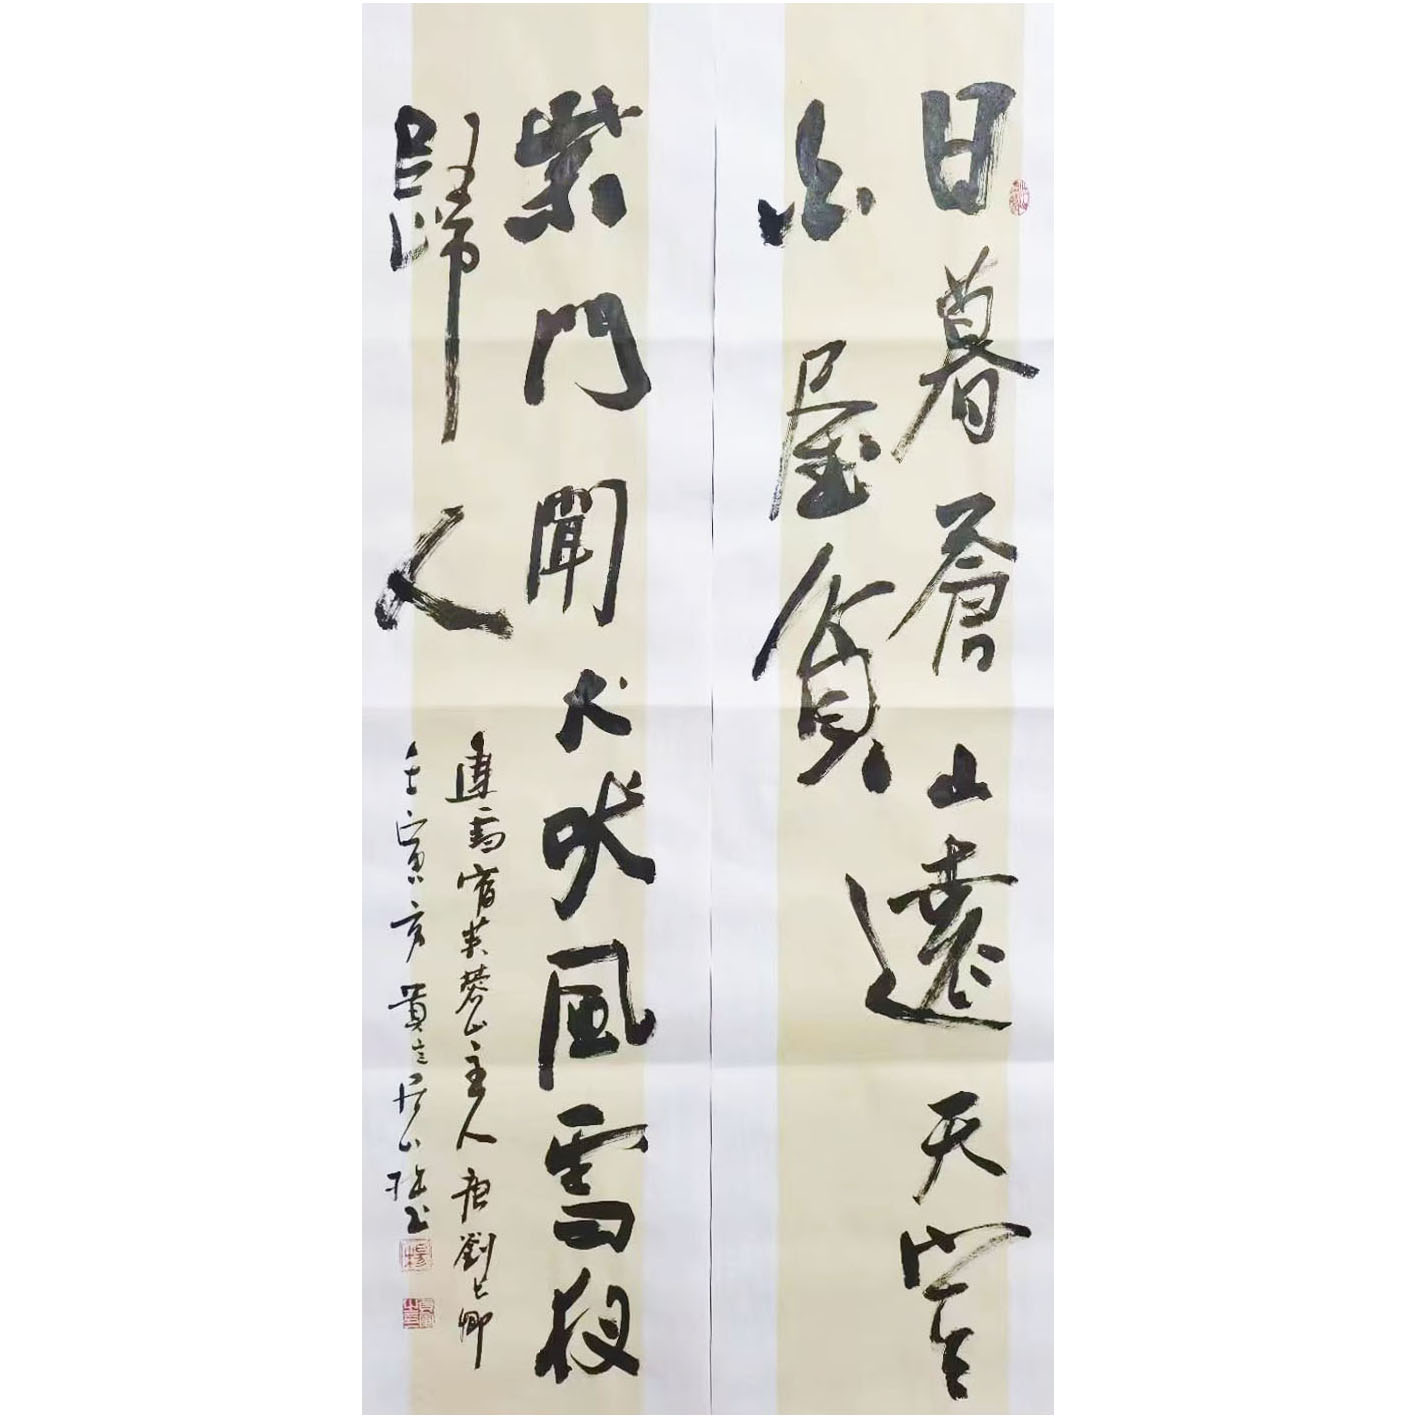 日暮蒼山遠天寒
白屋貧
柴門聞犬吠風雪夜
歸人
逢雪宿芙蓉山主人唐劉長卿
壬寅亥黄